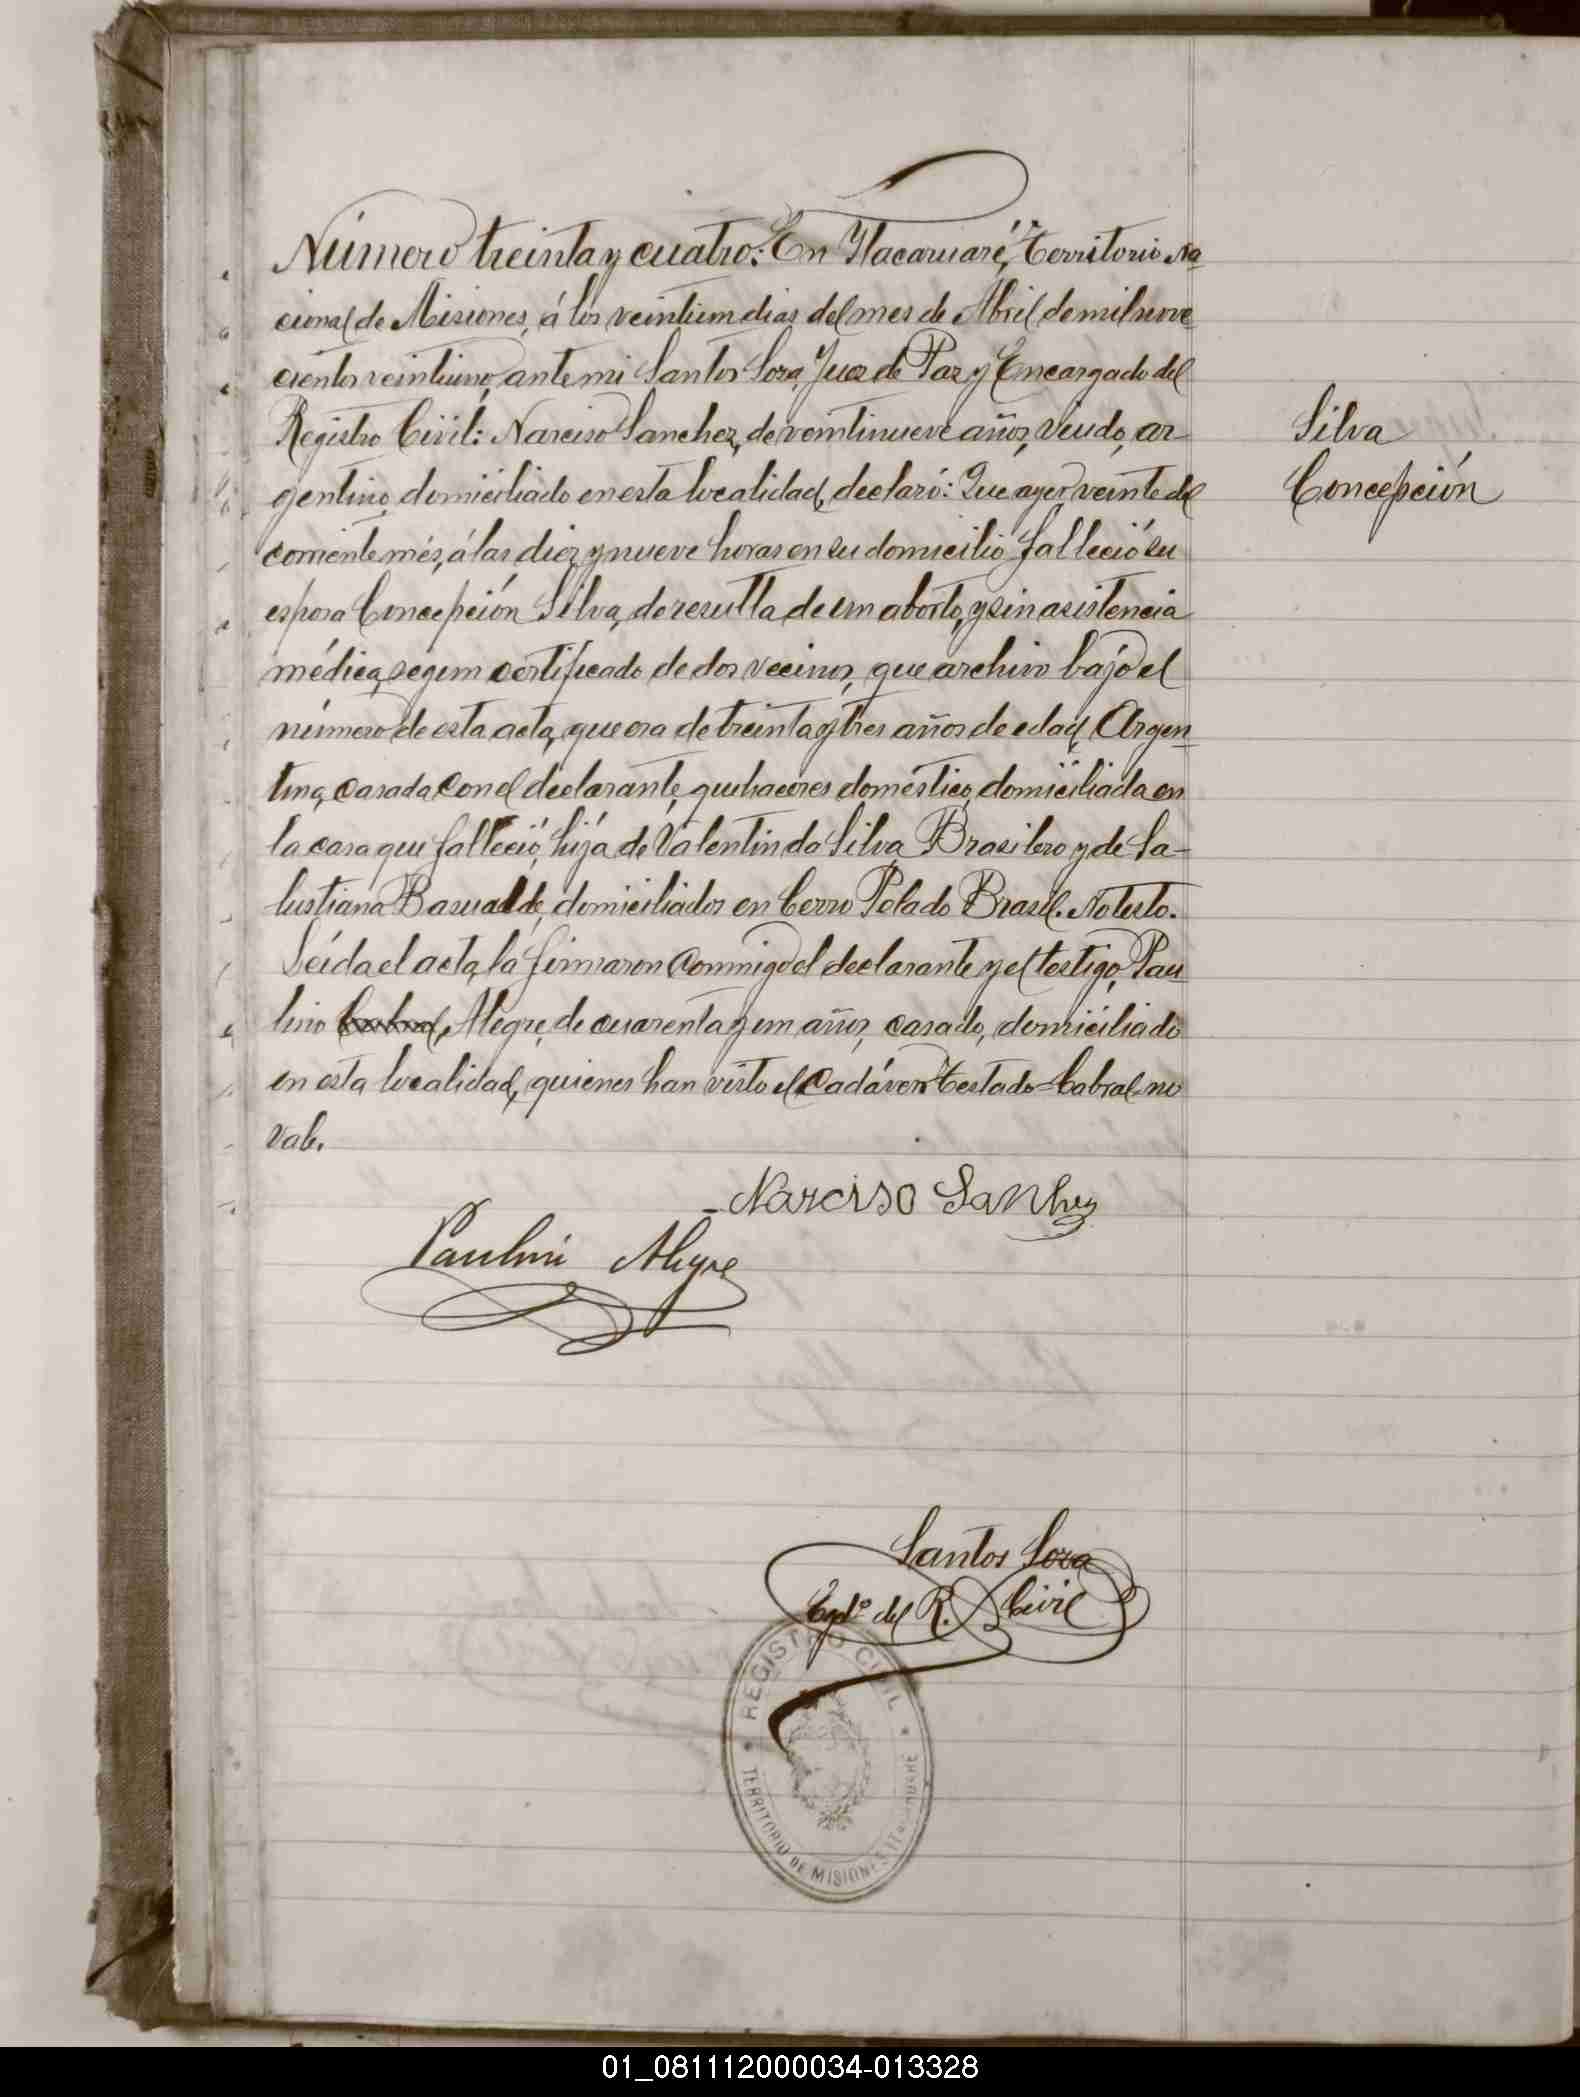 Número treinta y cuatro: En Itacaruaré, Territorio Na-
cional de Misiones, á los veintiun dias del mes de Abril de mil nove
cientos veintiuno, ante mi Santos Sosa, Juez de Paz y Encargado del
Registro Civil: Narciso Sanchez, de veintinueve años, viudo, ar-
gentino, domiciliado en esta localidad, declaró: Que ayer veinte del
corriente més, á las diez y nueve horas en su domicilio falleció su
esposa Concepción Silva, de resulta de un aborto, y sin asistencia
médica, segun certificado de dos vecinos, que archivo bajo el
número de esta acta, que era de treinta y tres años de edad, Argen-
tina, casada con el declarante, quehaceres doméstico, domiciliada en
la casa que falleció, hija de Valentin da Silva Brasilero y de Sa-
lustiana Basualde, domiciliados en Cerro Pelado Brasil. No testo.
Leída el acta, la firmaron conmigo el declarante y el testigo, Pau-
lino Cabral, Alegre, de cuarenta y un años, casado, domiciliado
en esta localidad, quienes han visto el cadáver. Testado=Cabral=no
vale.
Silva
Concepción
Narciso Sanhez
Paulini Alegre
Santos Sosa
Egdo. del R. Civil
REGISTRO CIVIL
TERRITORIO DE MISIONES
01_081112000034-013328